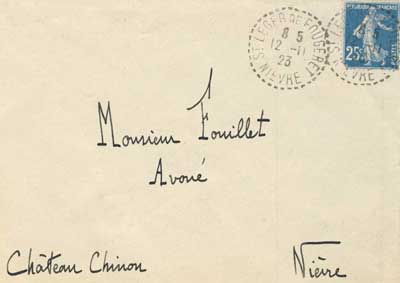 ST LEGER DE FOUGERET
8 5
12 - 11
23
NIEVRE
25c
POSTES
NIEVRE
Monsieur Fouillet
Avoué
Château Chinon
Nièvre